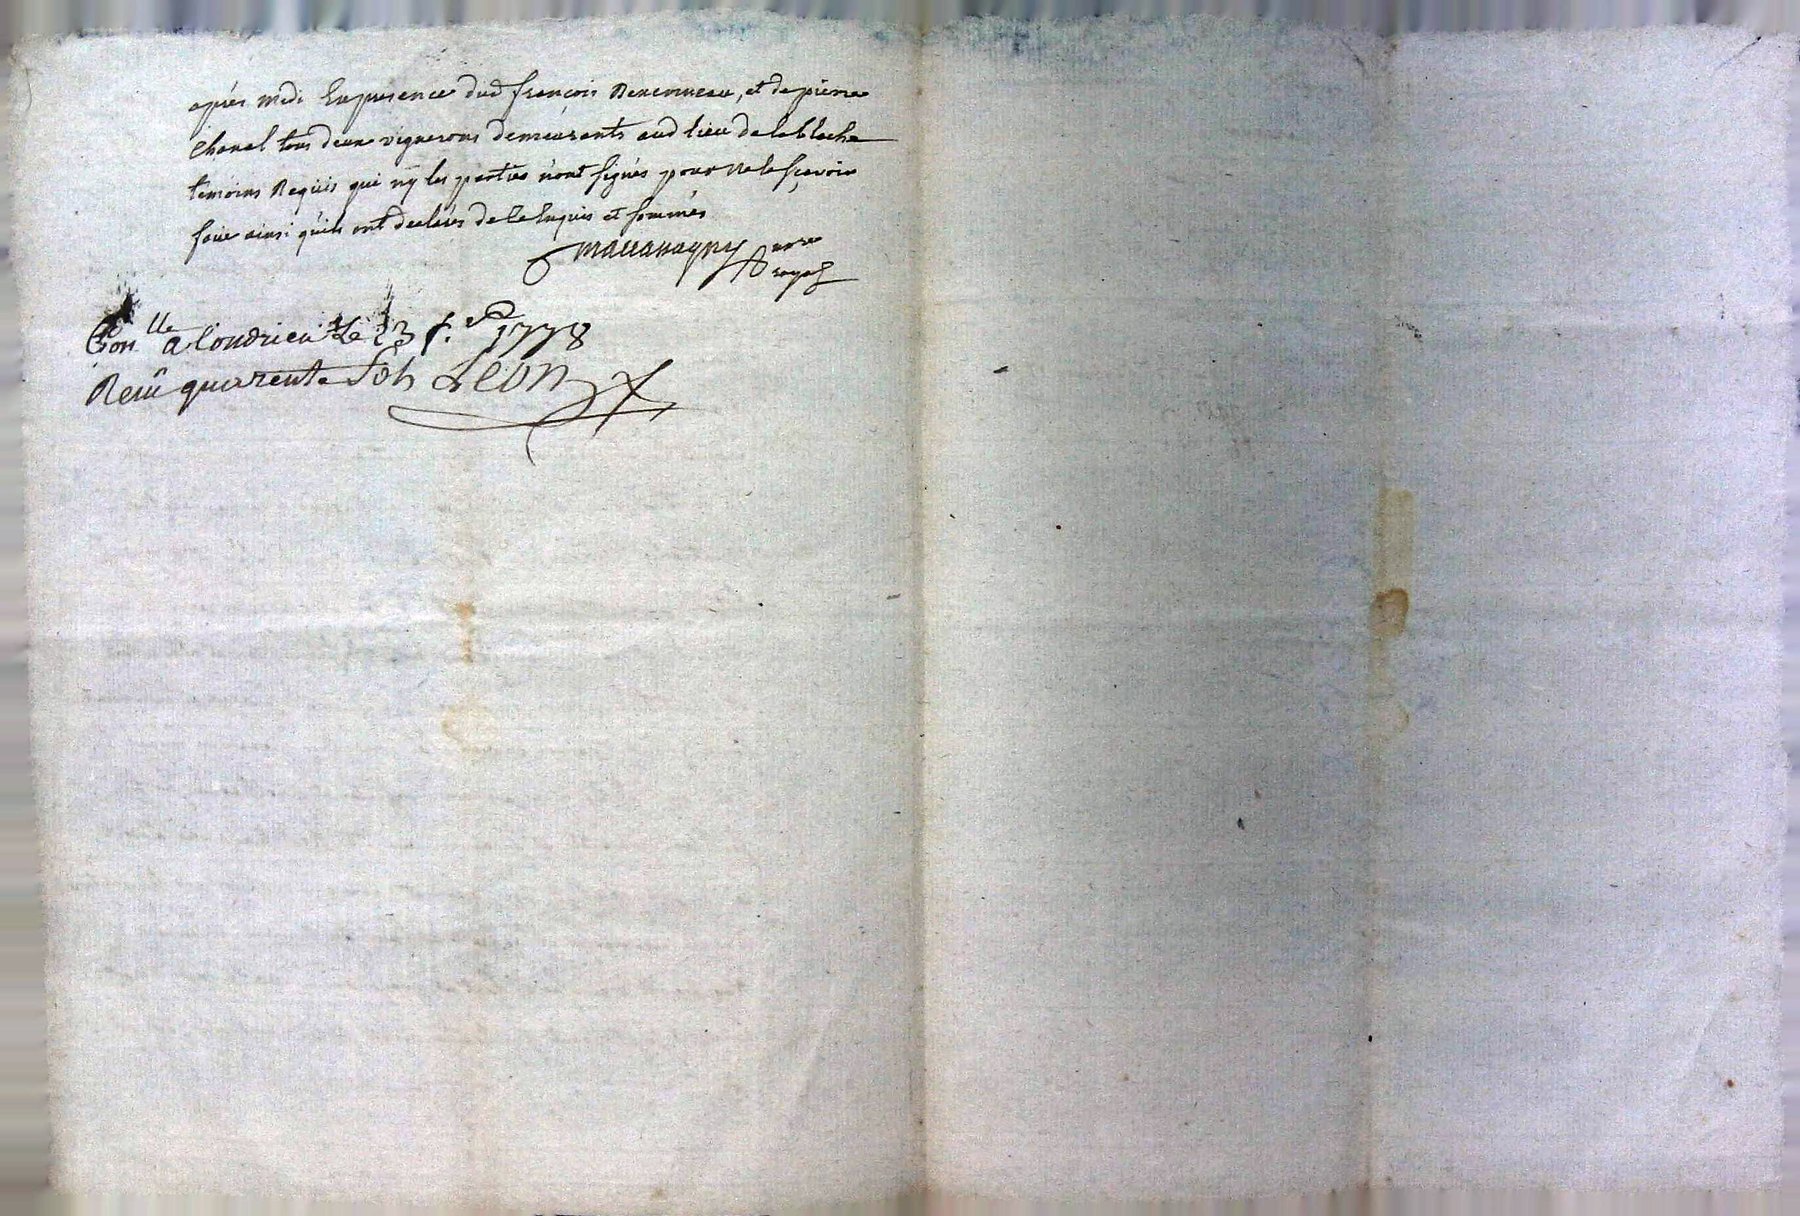 après midi En presence dud françois Benevineau, et de pierre
chanal tous deux vignerons demeurants aud lieu de la blache
temoins Requis qui ny les parties n'ont signés pour ne le sçavoir
faire ainsi qu'ils ont declarés de ce Enquis et sommés
no.re
royal
Con.lle a Condrieu le 23 1778
Reçu quarente sols Leon